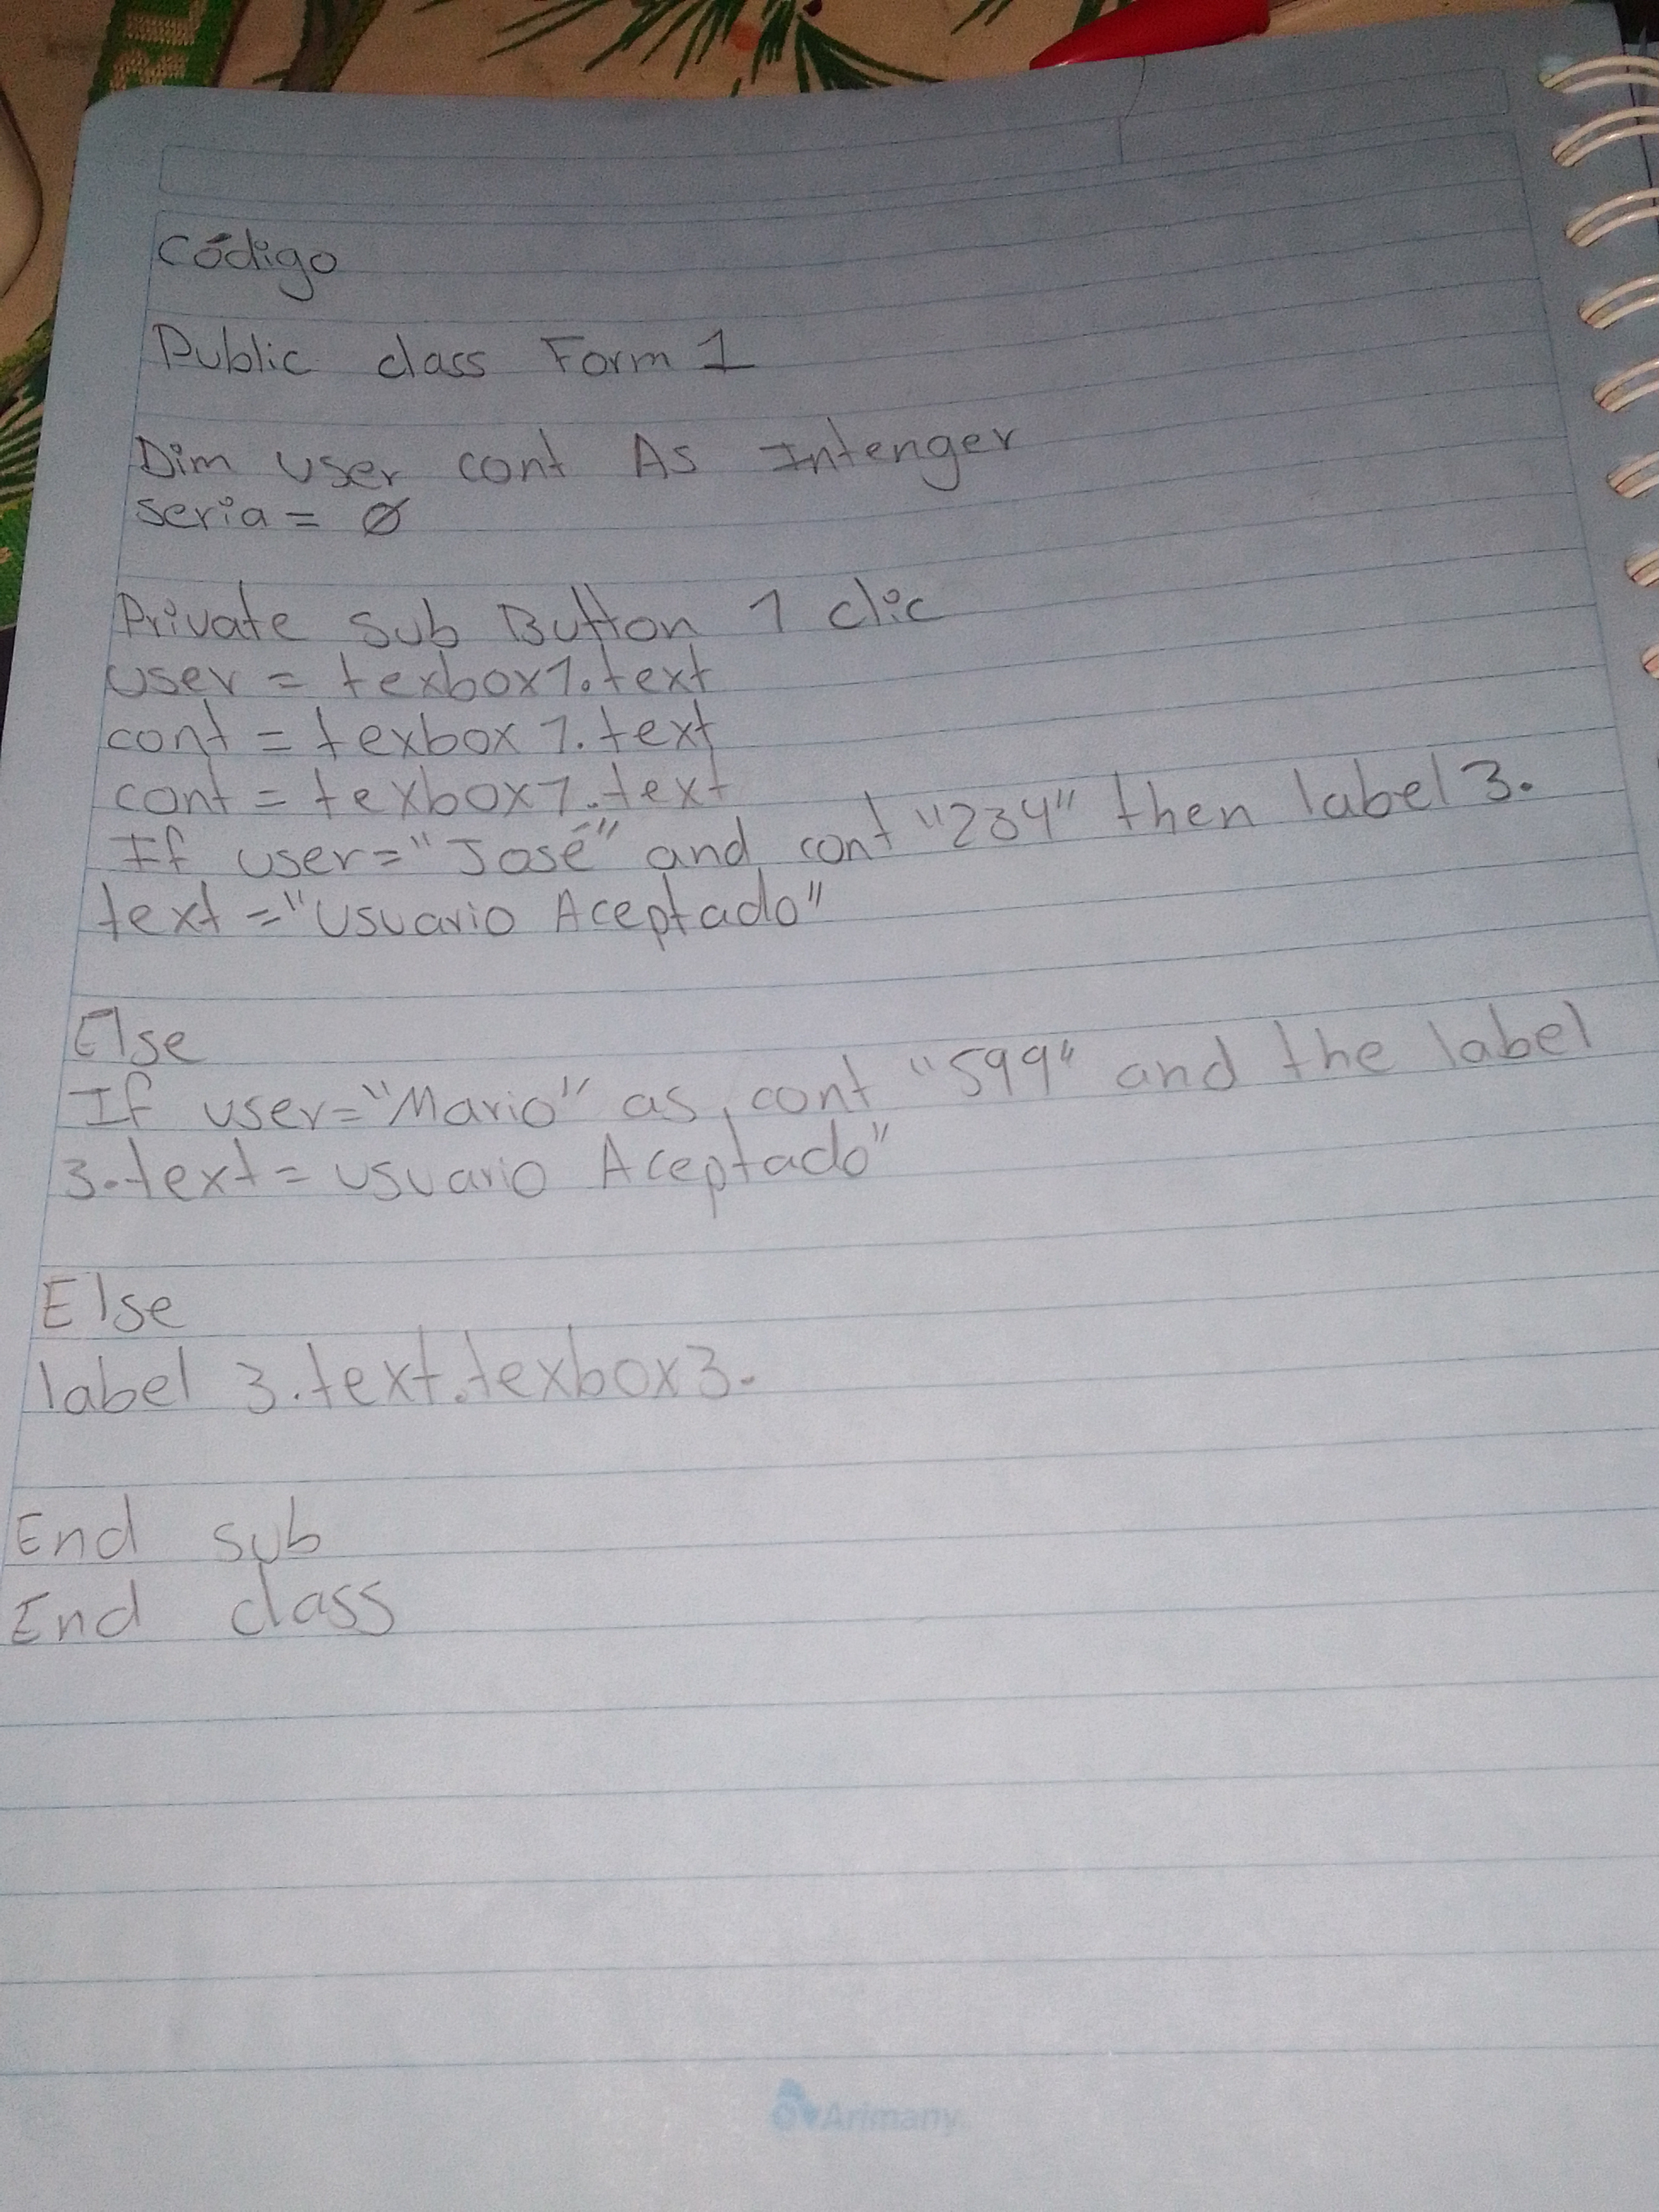 Código
Public class Form 1
Dim user cont As Intenger
seria = Ø
Private Sub Button 1 clic
user = texbox1.text
cont = texbox 1.text
cont = texbox1.text
If user="José" and cont "234" then label 3.
text ="Usuario Aceptado"
Else
If user="Mario" as, cont "599" and the label
3.text = usuario Aceptado"
Else
label 3.text.texbox3.
End sub
End class
Arimany